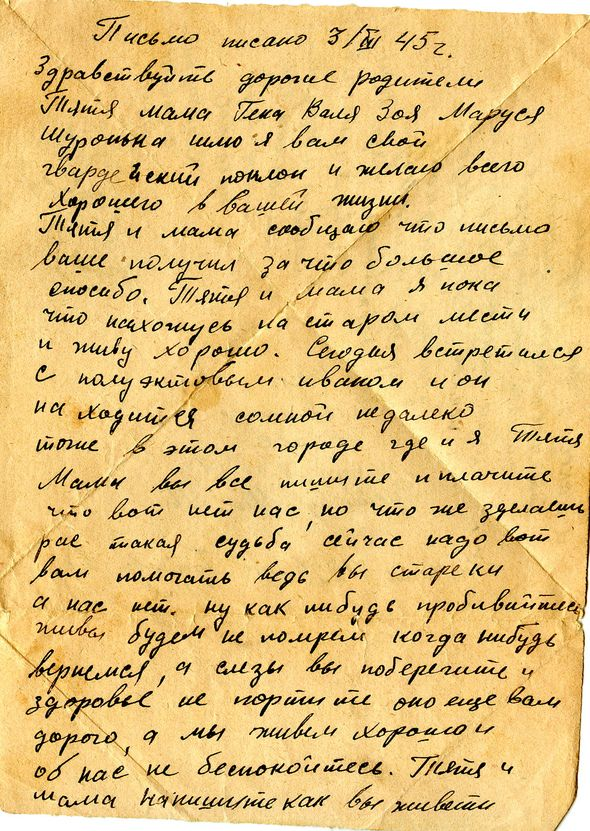 Письмо писано 3/III 45г.
Здравствуйть дорогие родители
Тятя мама Гена Валя Зоя Маруся
Шуронька шлю я вам свой
гвардейский поклон и желаю всего
хорошего в вашей жизни.
Тятя и мама сообщаю что письмо
ваше получил за что большое
спосибо. Тятя и мама я пока
что нахожусь на старом мести
и живу хорошо. Сегодня встретился
с полуэктовым иваном и он
на ходится сомной недалеко
тоже в этом городе где и я Тятя
Мама вы все пишите и плачите
что вот нет нас, но что же зделаешь
рас такая судьба сейчас надо вот
вам помогать ведь вы стареки
а нас нет. ну как нибудь пробивайтесь
живы будем не помрем когда нибудь
вернемся, а слезы вы поберегите и
здоровье не портите оно еще вам
дорого, а мы живем хорошо и
об нас не беспокойтесь. Тятя и
мама напишите как вы живети